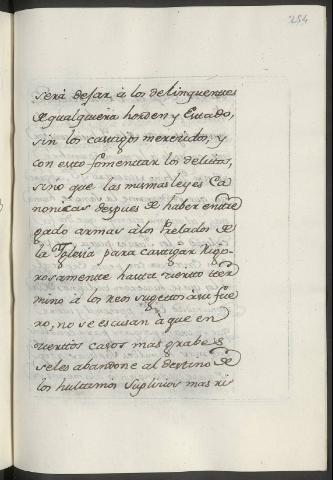 254
será dejar à los delinquentes
de qualquiera horden y Estado,
sin los castigos merecidos, y
con esto fomentar los delitos,
sino que las mismas leyes Ca
nonicas despues de haber entre
gado armas à los Prelados de
la Yglesia para castigar Rigo
rosamente hasta cierto ter
mino à los reos sugetos à su fue
ro, no se escusan à que en
ciertos casos mas grabes
se les abandone al destino de
los hultimos suplicios mas ris